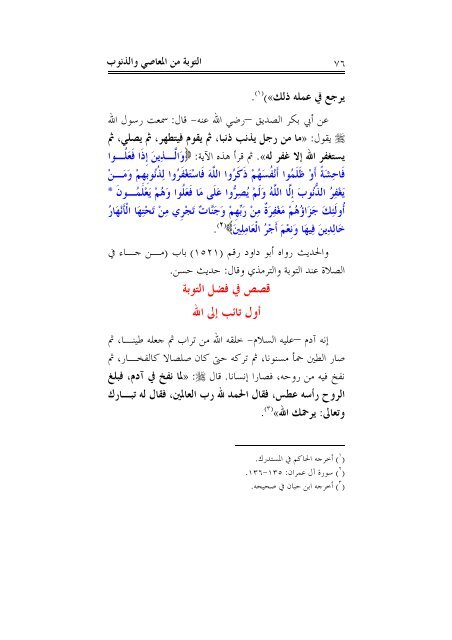 ٧٦ التوبة من المعاصي والذنوب
يرجع في عمله ذلك»)(١).
عن أبي بكر الصديق –رضي الله عنه- قال: سمعت رسول الله
ﷺ يقول: «ما من رجل يذنب ذنبا، ثم يقوم فيتطهر، ثم يصلي، ثم
يستغفر الله إلا غفر له». ثم قرأ هذه الآية: ﴿وَالَّـــذِينَ إِذَا فَعَلُـــوا
فَاحِشَةً أَوْ ظَلَمُوا أَنْفُسَهُمْ ذَكَرُوا اللَّهَ فَاسْتَغْفَرُوا لِذُنُوبِهِمْ وَمَـــنْ
يَغْفِرُ الذُّنُوبَ إِلَّا اللَّهُ وَلَمْ يُصِرُّوا عَلَى مَا فَعَلُوا وَهُمْ يَعْلَمُـــونَ *
أُولَئِكَ جَزَاؤُهُمْ مَغْفِرَةٌ مِنْ رَبِّهِمْ وَجَنَّاتٌ تَجْرِي مِنْ تَحْتِهَا الْأَنْهَارُ
خَالِدِينَ فِيهَا وَنِعْمَ أَجْرُ الْعَامِلِينَ﴾(٢).
والحديث رواه أبو داود رقم (١٥٢١) باب (مـــن جـــاء في
الصلاة عند التوبة والترمذي وقال: حديث حسن.
قصص في فضل التوبة
أول تائب إلى الله
إنه آدم –عليه السلام- خلقه الله من تراب ثم جعله طينـــا، ثم
صار الطين حمأ مسنونا، ثم تركه حتى كان صلصالا كالفخـــار، ثم
نفخ فيه من روحه، فصارا إنسانا. قال ﷺ: «لما نفخ في آدم، فبلغ
الروح رأسه عطس، فقال الحمد لله رب العالمين، فقال له تبـــارك
وتعالى: يرحمك الله»(٣).
(١) أخرجه الحاكم في المستدرك.
(٢) سورة آل عمران: ١٣٥-١٣٦.
(٣) أخرجه ابن حبان في صحيحه.